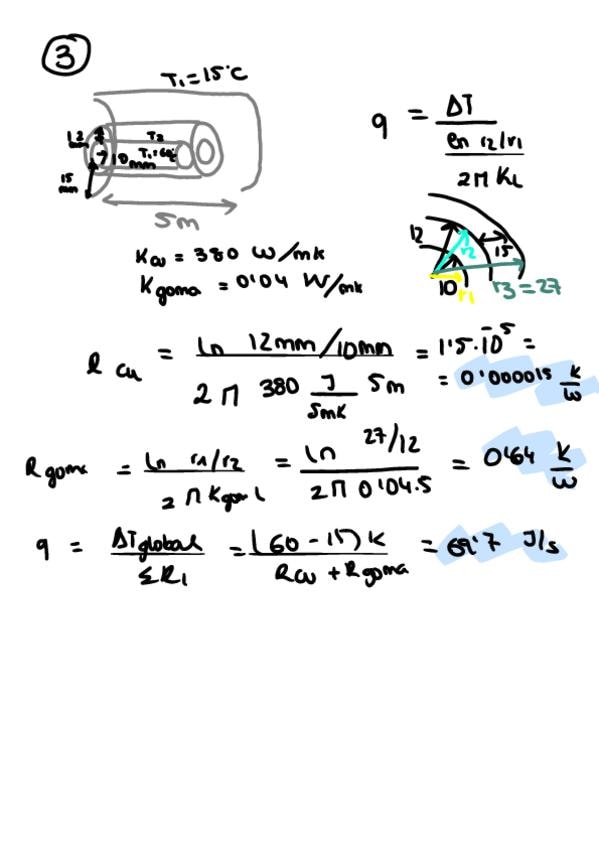 3
T₁ = 15°C
q = ΔT / (ln r2/r1 / 2π K L)
12 mm
T₂
T₁ = 60°C
10 mm
15 mm
5m
12 r2 15
10 r1 r3 = 27
Kcu = 380 W/mk
Kgoma = 0'04 W/mk
R cu = ln 12mm/10mm / (2π 380 J/smK 5m) = 1'5·10⁻⁵ =
= 0'000015 K/W
Rgoma = ln r1/r2 / (2π Kgom L) = ln 27/12 / (2π 0'04·5) = 0'64 K/W
q = ΔTglobal / ΣRi = (60 - 15) K / (Rcu + Rgoma) = 69'7 J/s